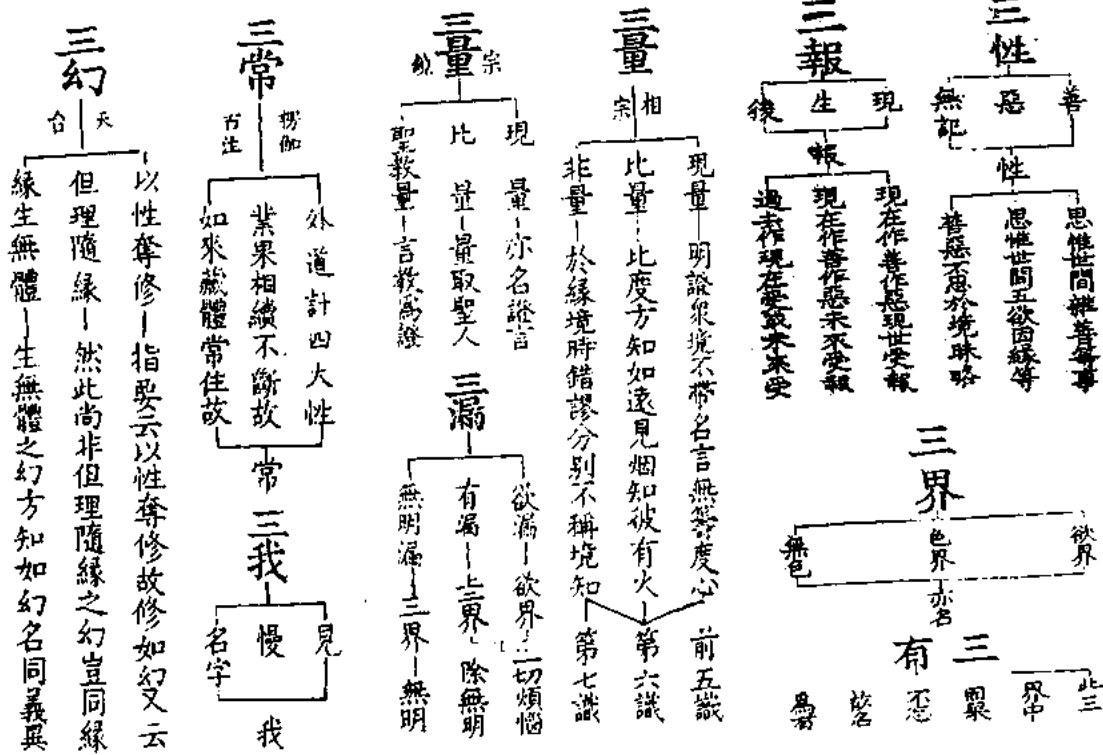 三性
善
惡
無記
性
思惟世間雜善等事
思惟世間五欲因緣等
善惡不思於境昧略
三界
欲界
色界
無色
亦名
三有
此三
界中
不忘
故名
三報
現
生
後
報
現在作善作惡現世受報
現在作善作惡未來受報
過去作現在受或未來受
三量
相宗
現量－明證眾境不帶名言無籌度心
比量－比度方知如遠見烟知彼有火
非量－於緣境時錯謬分別不稱境知
前五識
第六識
第七識
三量
宗鏡
現量－亦名證言
比量－量取聖人
聖教量－言教為證
三漏
欲漏－欲界一切煩惱
有漏－上界除無明
無明漏－三界－無明
三常
楞伽
百注
外道計四大性
業果相續不斷故
如來藏體常住故
常
三我
見
慢
名字
我
三幻
天台
以性奪修－指要云以性奪修故修如幻又云
但理隨緣－然此尚非但理隨緣之幻豈同緣
緣生無體－生無體之幻方知如幻名同義異